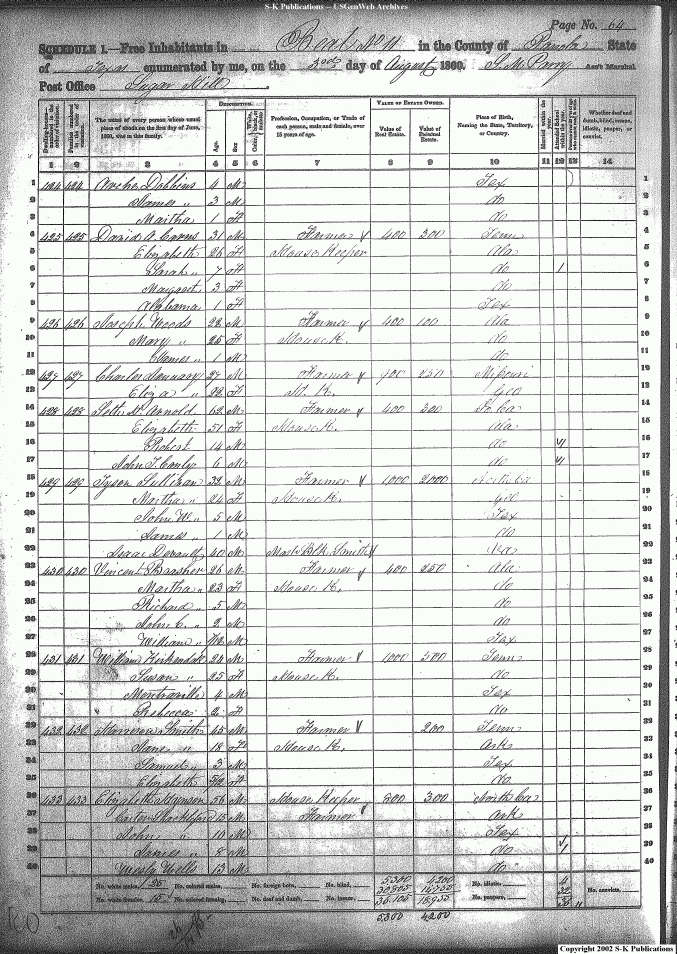 S-K Publications -- USGenWeb Archives
Page No. 64
SCHEDULE 1.—Free Inhabitants in Beat No 11 in the County of Panola State
of Texas enumerated by me, on the 3rd day of August 1860. S. M. Perry Ass't Marshal.
Post Office Sugar Hill
DESCRIPTION.
VALUE OF ESTATE OWNED.
Dwelling-houses numbered in the order of visitation.
Families numbered in the order of visitation.
The name of every person whose usual place of abode on the first day of June, 1860, was in this family.
Age.
Sex
Color, White, black, or mulatto
Profession, Occupation, or Trade of each person, male and female, over 15 years of age.
Value of Real Estate.
Value of Personal Estate.
Place of Birth, Naming the State, Territory, or Country.
Married within the year.
Attended School within the year.
Whether deaf and dumb, blind, insane, idiotic, pauper, or convict.
1 2 3 4 5 6 7 8 9 10 11 12 13 14
1 424 424 Archer Dobbins 4 M Tex 1
2 James " 3 M do 2
3 Martha " 1 F do 3
4 425 425 David A 31 M Farmer 400 300 Tenn 4
5 Elizabeth 26 F House Keeper Ala 5
6 Sarah " 7 F do 1 6
7 Margaret 3 F do 7
8 Alabama 1 F Tex 8
9 426 426 Joseph Woods 22 M Farmer 400 100 Ala 9
10 Mary " 25 F House K. do 10
11 James " 1 M do 11
12 427 427 Charles January 27 M Farmer 250 Missouri 12
13 Eliza " 22 F H. K. Geo 13
14 428 428 Seth Arnold 62 M Farmer 400 300 So Ca 14
15 Elizabeth 51 F House K. Ala 15
16 Robert 14 M do 16
17 John T. 6 M do 17
18 429 429 Tyson Sullivan 32 M Farmer 1000 2000 North Ca 18
19 Martha " 24 F House K. Geo 19
20 John W. " 5 M Tex 20
21 James " 1 M do 21
22 Isaac 40 M Smith 22
23 430 430 Vincent Brasher 26 M Farmer 400 250 Ala 23
24 Martha " 23 F House K. do 24
25 Richard " 5 M do 25
26 John C. " 2 M do 26
27 William " M Tex 27
28 431 431 William 24 M Farmer 1000 500 Tenn 28
29 Susan " 25 F House K. do 29
30 Montraville 4 M Tex 30
31 Rebecca 2 F do
32 432 432 Smith 45 M Farmer 200 Tenn
33 Jane " 18 F House K. Ark
34 Samuel " 3 M Tex 34
35 Elizabeth F do
36 433 433 Elizabeth 56 M House Keeper 800 300 North Ca 36
37 Carter 15 M Farmer Ark 37
38 John " 10 M Tex 38
39 James " 8 M do 39
40 Westly Wells 13 M do 40
No. white males, 25 No. colored males, No. foreign born, No. blind, 5300 4200 No. idiotic, 4 No. convicts,
No. white females, 15 No. colored females, No. deaf and dumb, No. insane, No. paupers,
5300 4200
Copyright 2002 S-K Publications